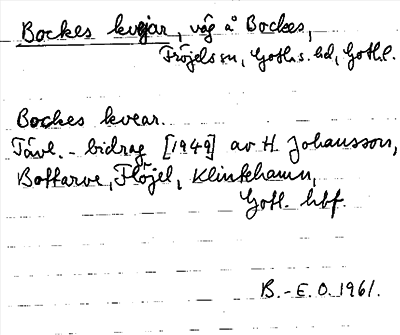 Bockes kvejar, väg å Bockes,
Fröjels sn, Goth.s. hd, Gotl.l.
Bockes kvear.
Tävl.-bidrag [1949] av H. Johansson,
Bottarve, Flöjel, Klintehamn,
Gotl. hbf.
B.-E.O. 1961.